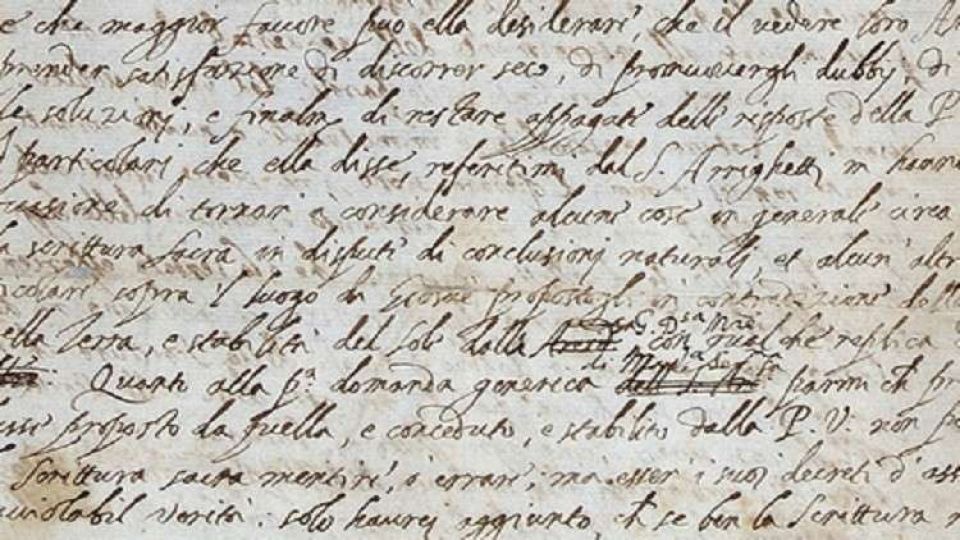 e che maggior favore può ella desiderare, che il vedere loro
prender satisfazione di discorrer seco, di promuovergli dubbij, di
le soluzioni, e finalm di restare appagati delle risposte della P
particolari, che ella disse, referitimi dal S. Arrighetti m hanno
casione di tornar à considerare alcune cose in generale circa
a scrittura sacra in dispute di conclusioni naturali, et alcun' altre
icolare sopra 'l luogo di Giosuè propostogli in contradizione della
ella Terra, e stabilità del Sole dalla G. D.sa Mre con qual che replica
Quanto alla p.a domanda generica di Mad.a Ser.ma parmi ch pr
issi proposto da quella, e conceduto, e stabilito dalla P. V. non po
Scrittura sacra mentire, ò errare; ma esser i suoi decreti d' ass
inviolabil verità. solo haurei aggiunto, ch se ben la Scrittura n